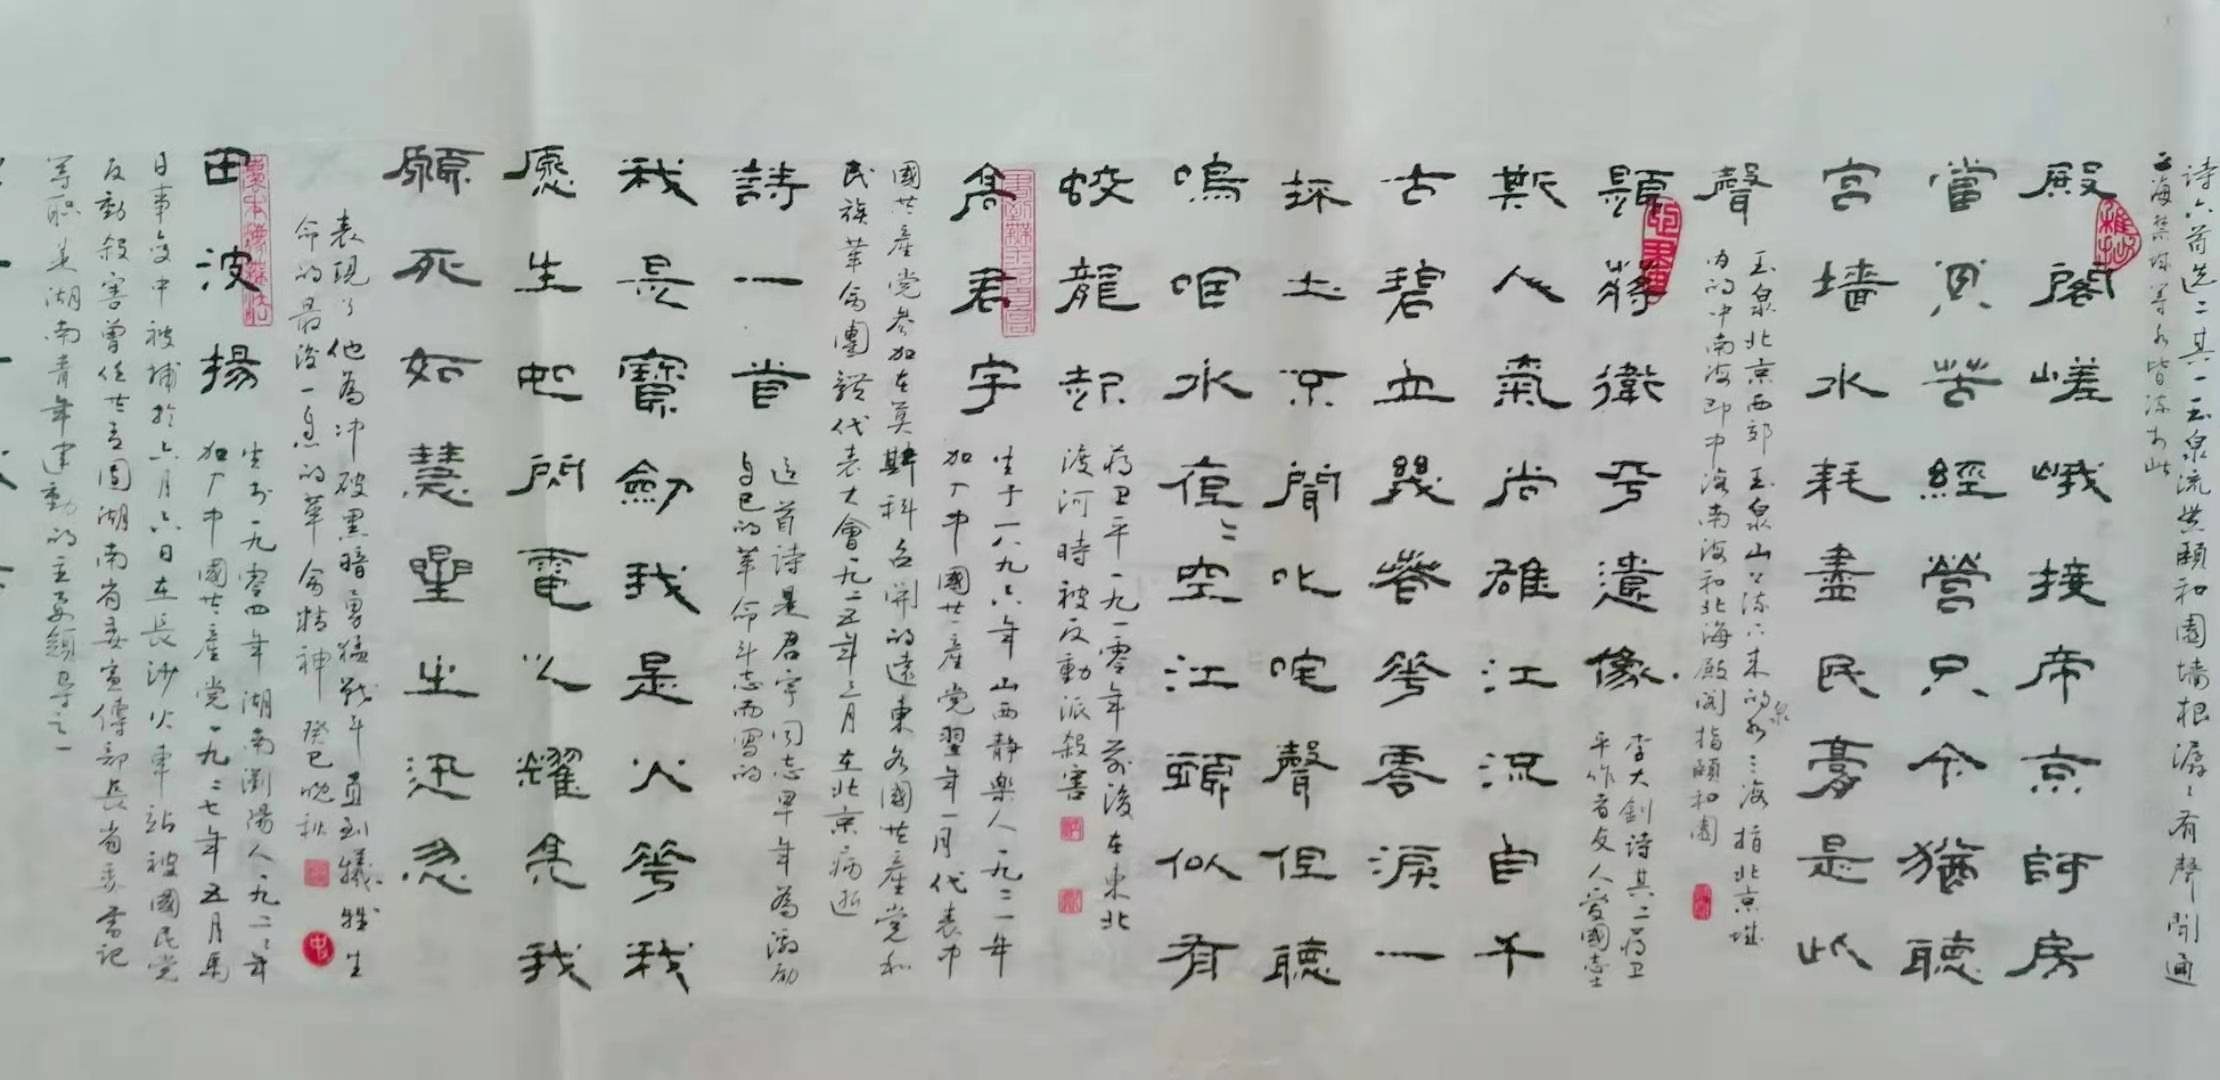 诗六首选二其一玉泉流贯颐和园墙根潺〻有聲聞通
三海禁城等水皆源於此
殿阁嵯峨接帝京阿房
當年苦經營只今猶聽
宫墙水耗盡民膏是此
聲
玉泉北京西郊玉泉山下流下来的泉水三海指北京城
内的中南海即中海南海和北海殿阁指頤和園
題蒋衛平遺像
李大釗诗其二蒋卫
平作者友人爱國志士
斯人氣尚雄江流自千
古碧血幾春花零淚一
抔土不聞叱咤聲但聽
嗚咽水夜〻空江頭似有
蛟龍起
蒋卫平一九一零年前後在東北
渡河時被反動派殺害
高君宇
生于一八九六年山西静樂人一九二一年
加入中國共產党翌年一月代表中
國共產党参加在莫斯科召開的遠東各國共產党和
民族革命團體代表大會一九二五年三月在北京病逝
詩一首
这首诗是君宇同志早年為激励
自己的革命斗志而写的
我是寶劍我是火花我
愿生如閃電之耀亮我
願死如慧星之迅忽
表現了他為冲破黑暗勇猛戰斗直到犧牲生
命的最後一息的革命精神 癸巳晚秋
田波揚
生於一九零四年湖南瀏陽人一九二二年
加入中國共產党一九二七年五月馬
日事变中被捕於六月六日在長沙火車站被國民党
反動殺害曾任共青團湖南省委宣傳部長省委書记
等职是湖南青年運動的主要領导之一